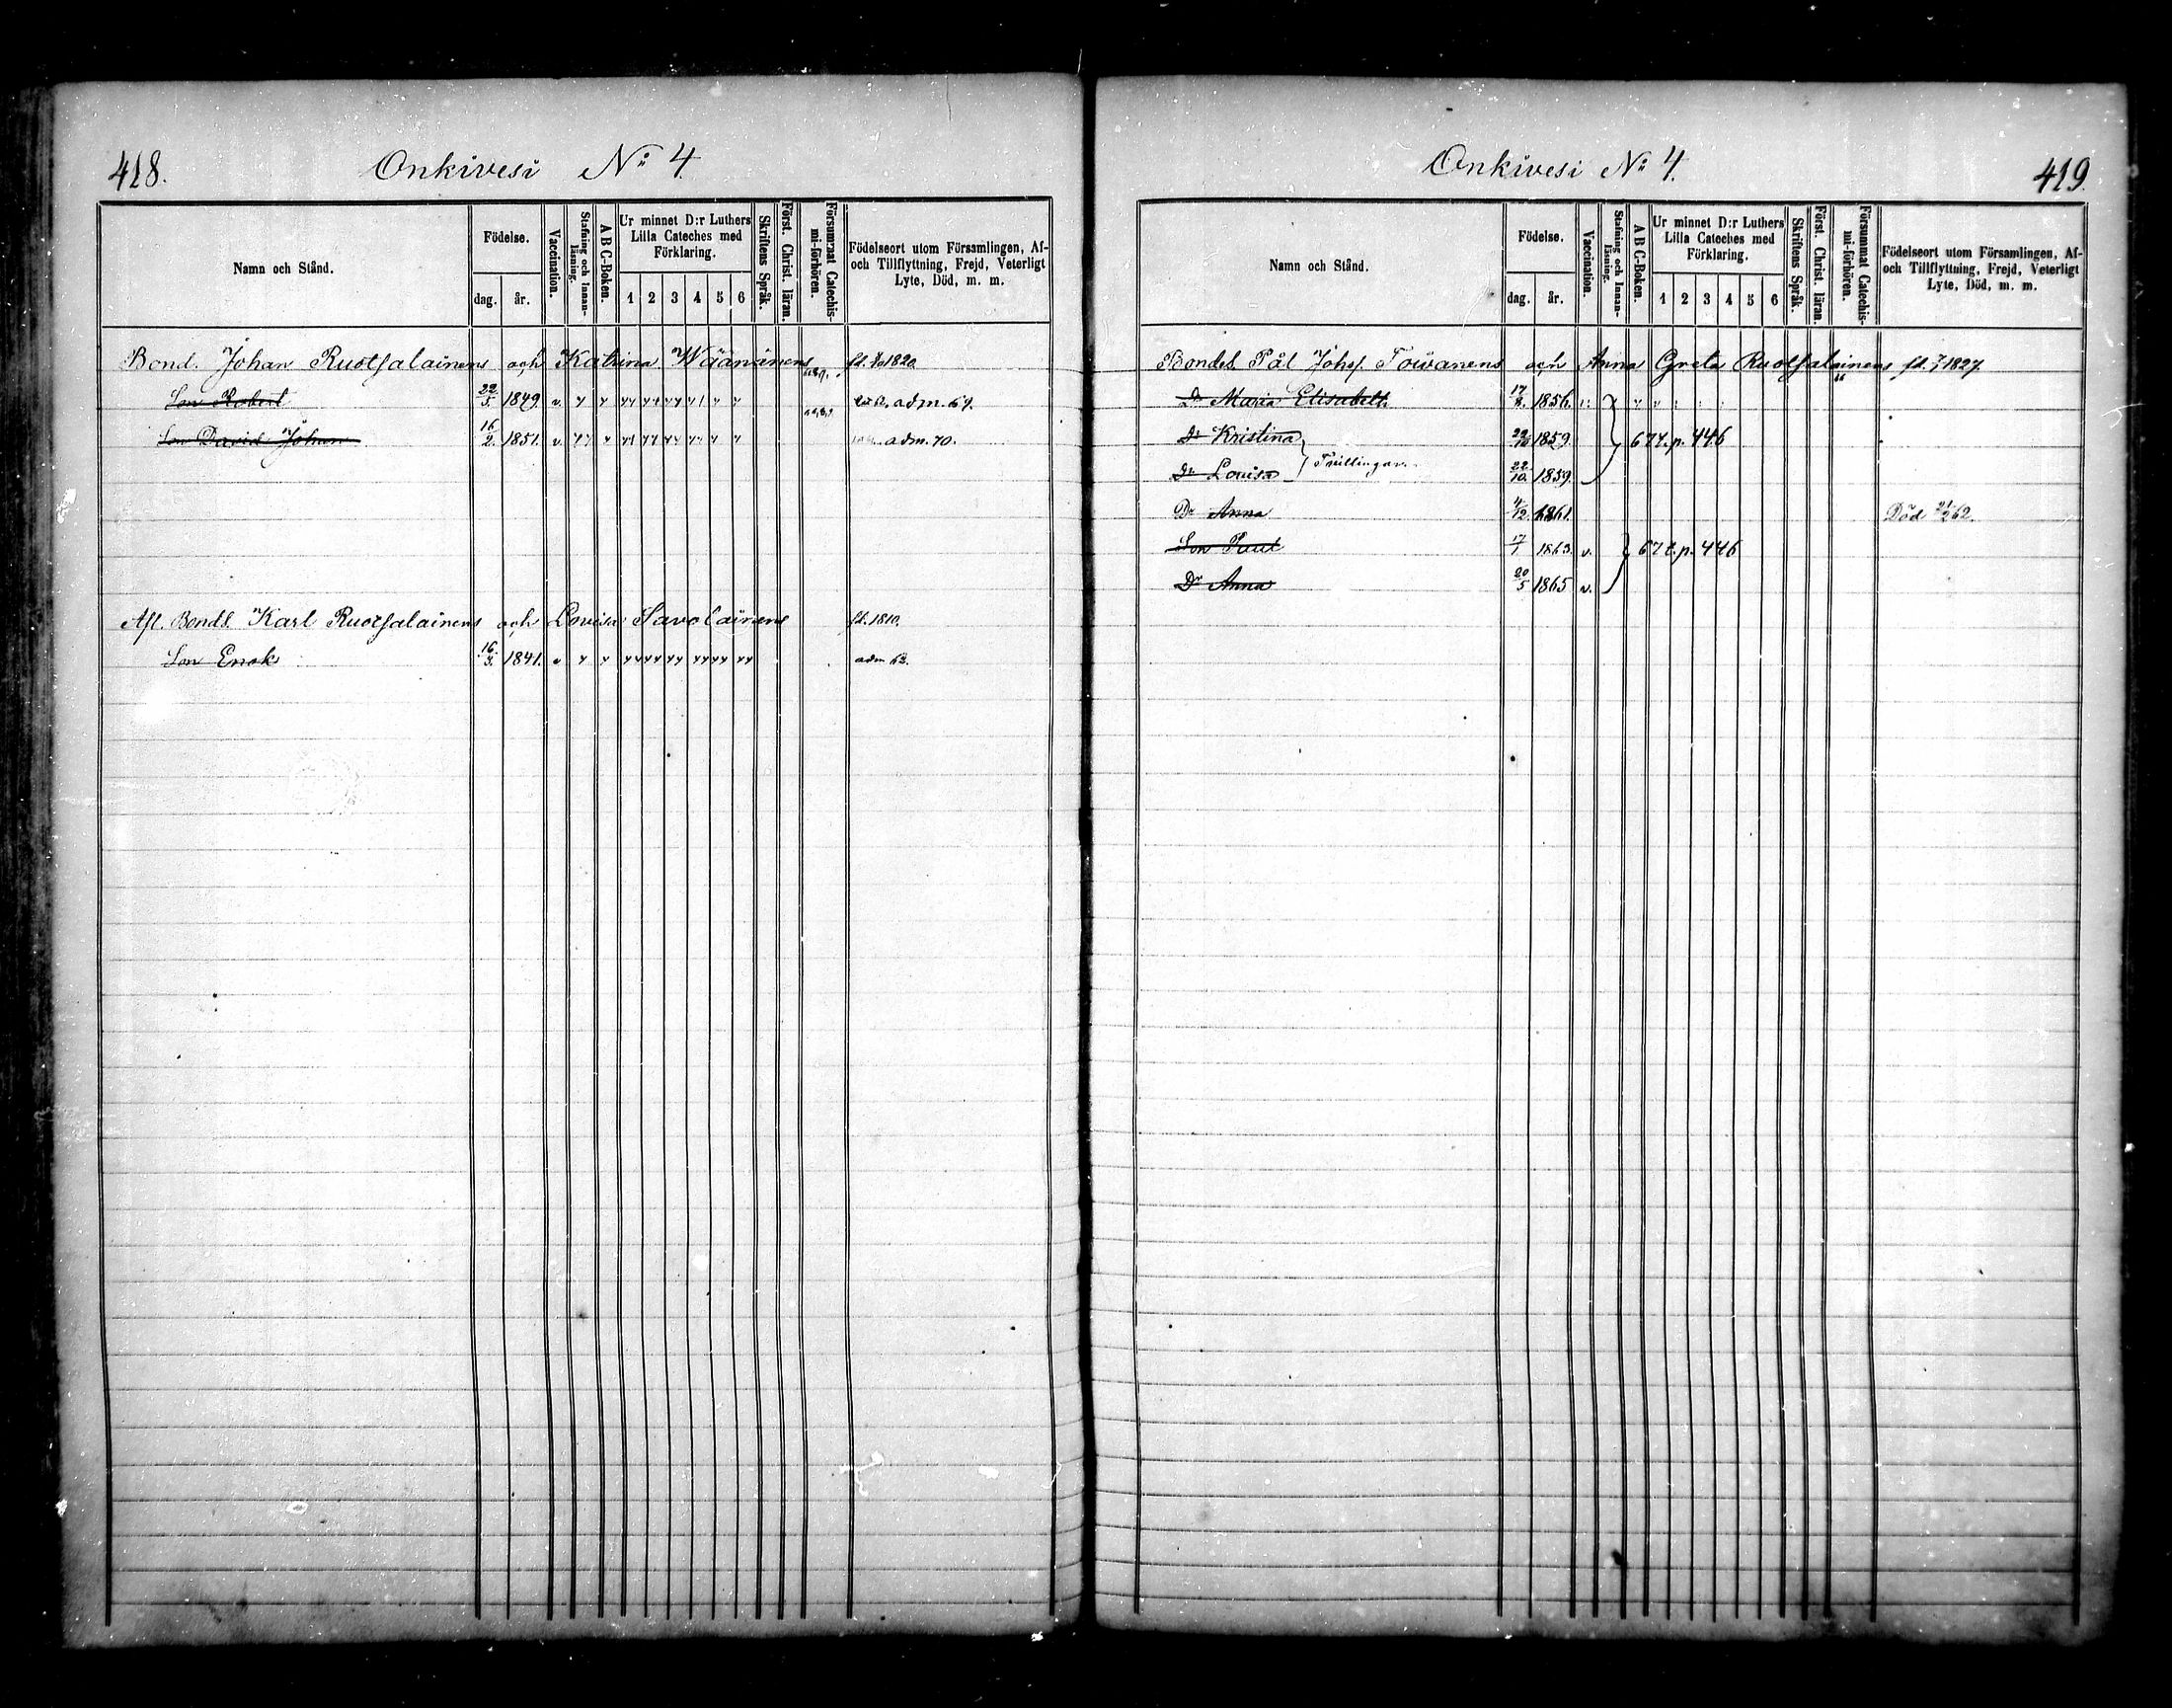 418.
Onkivesi No 4.
Namn och Stånd.
Födelse.
dag.
år.
Vaccination.
Stafning och Innan-
läsning.
A B C-Boken.
Ur minnet D:r Luthers
Lilla Cateches med
Förklaring.
1 2 3 4 5 6
Skriftens Språk.
Först. Christ. läran.
Försummat Catechis-
mi-förhören.
Födelseort utom Församlingen, Af-
och Tillflyttning, Frejd, Veterligt
Lyte, Död, m. m.
Bond. Johan Ruotsalainens och Katrina Wäänänens fd. 1820.
Son Robert 22/5. 1849. v. adm. 69.
Son David Johan 16/2. 1851. v. adm. 70.
Afl. Bond. Karl Ruotsalainens och Lovisa Savolainens fd. 1810.
Son Enok 16/3. 1841. adm 63.
Onkivesi No 4.
419.
Namn och Stånd.
Födelse.
dag.
år.
Vaccination.
Stafning och Innan-
läsning.
A B C-Boken.
Ur minnet D:r Luthers
Lilla Cateches med
Förklaring.
1 2 3 4 5 6
Skriftens Språk.
Först. Christ. läran.
Försummat Catechis-
mi-förhören.
Födelseort utom Församlingen, Af-
och Tillflyttning, Frejd, Veterligt
Lyte, Död, m. m.
Bondes. Pål Johs. Toivanens och Anna Greta Ruotsalainens fd. 1827.
Dr Maria Elisabeth 17/8. 1856.
Dr Kristina 22/10 1859. 67 t. p. 446
Trillingar.
Dr Lovisa 22/10. 1859.
Dr Anna 4/12. 1861. Död 62.
Son Paul 17/1 1863. v. 67 t. p. 446
Dr Anna 20/5 1865 v.